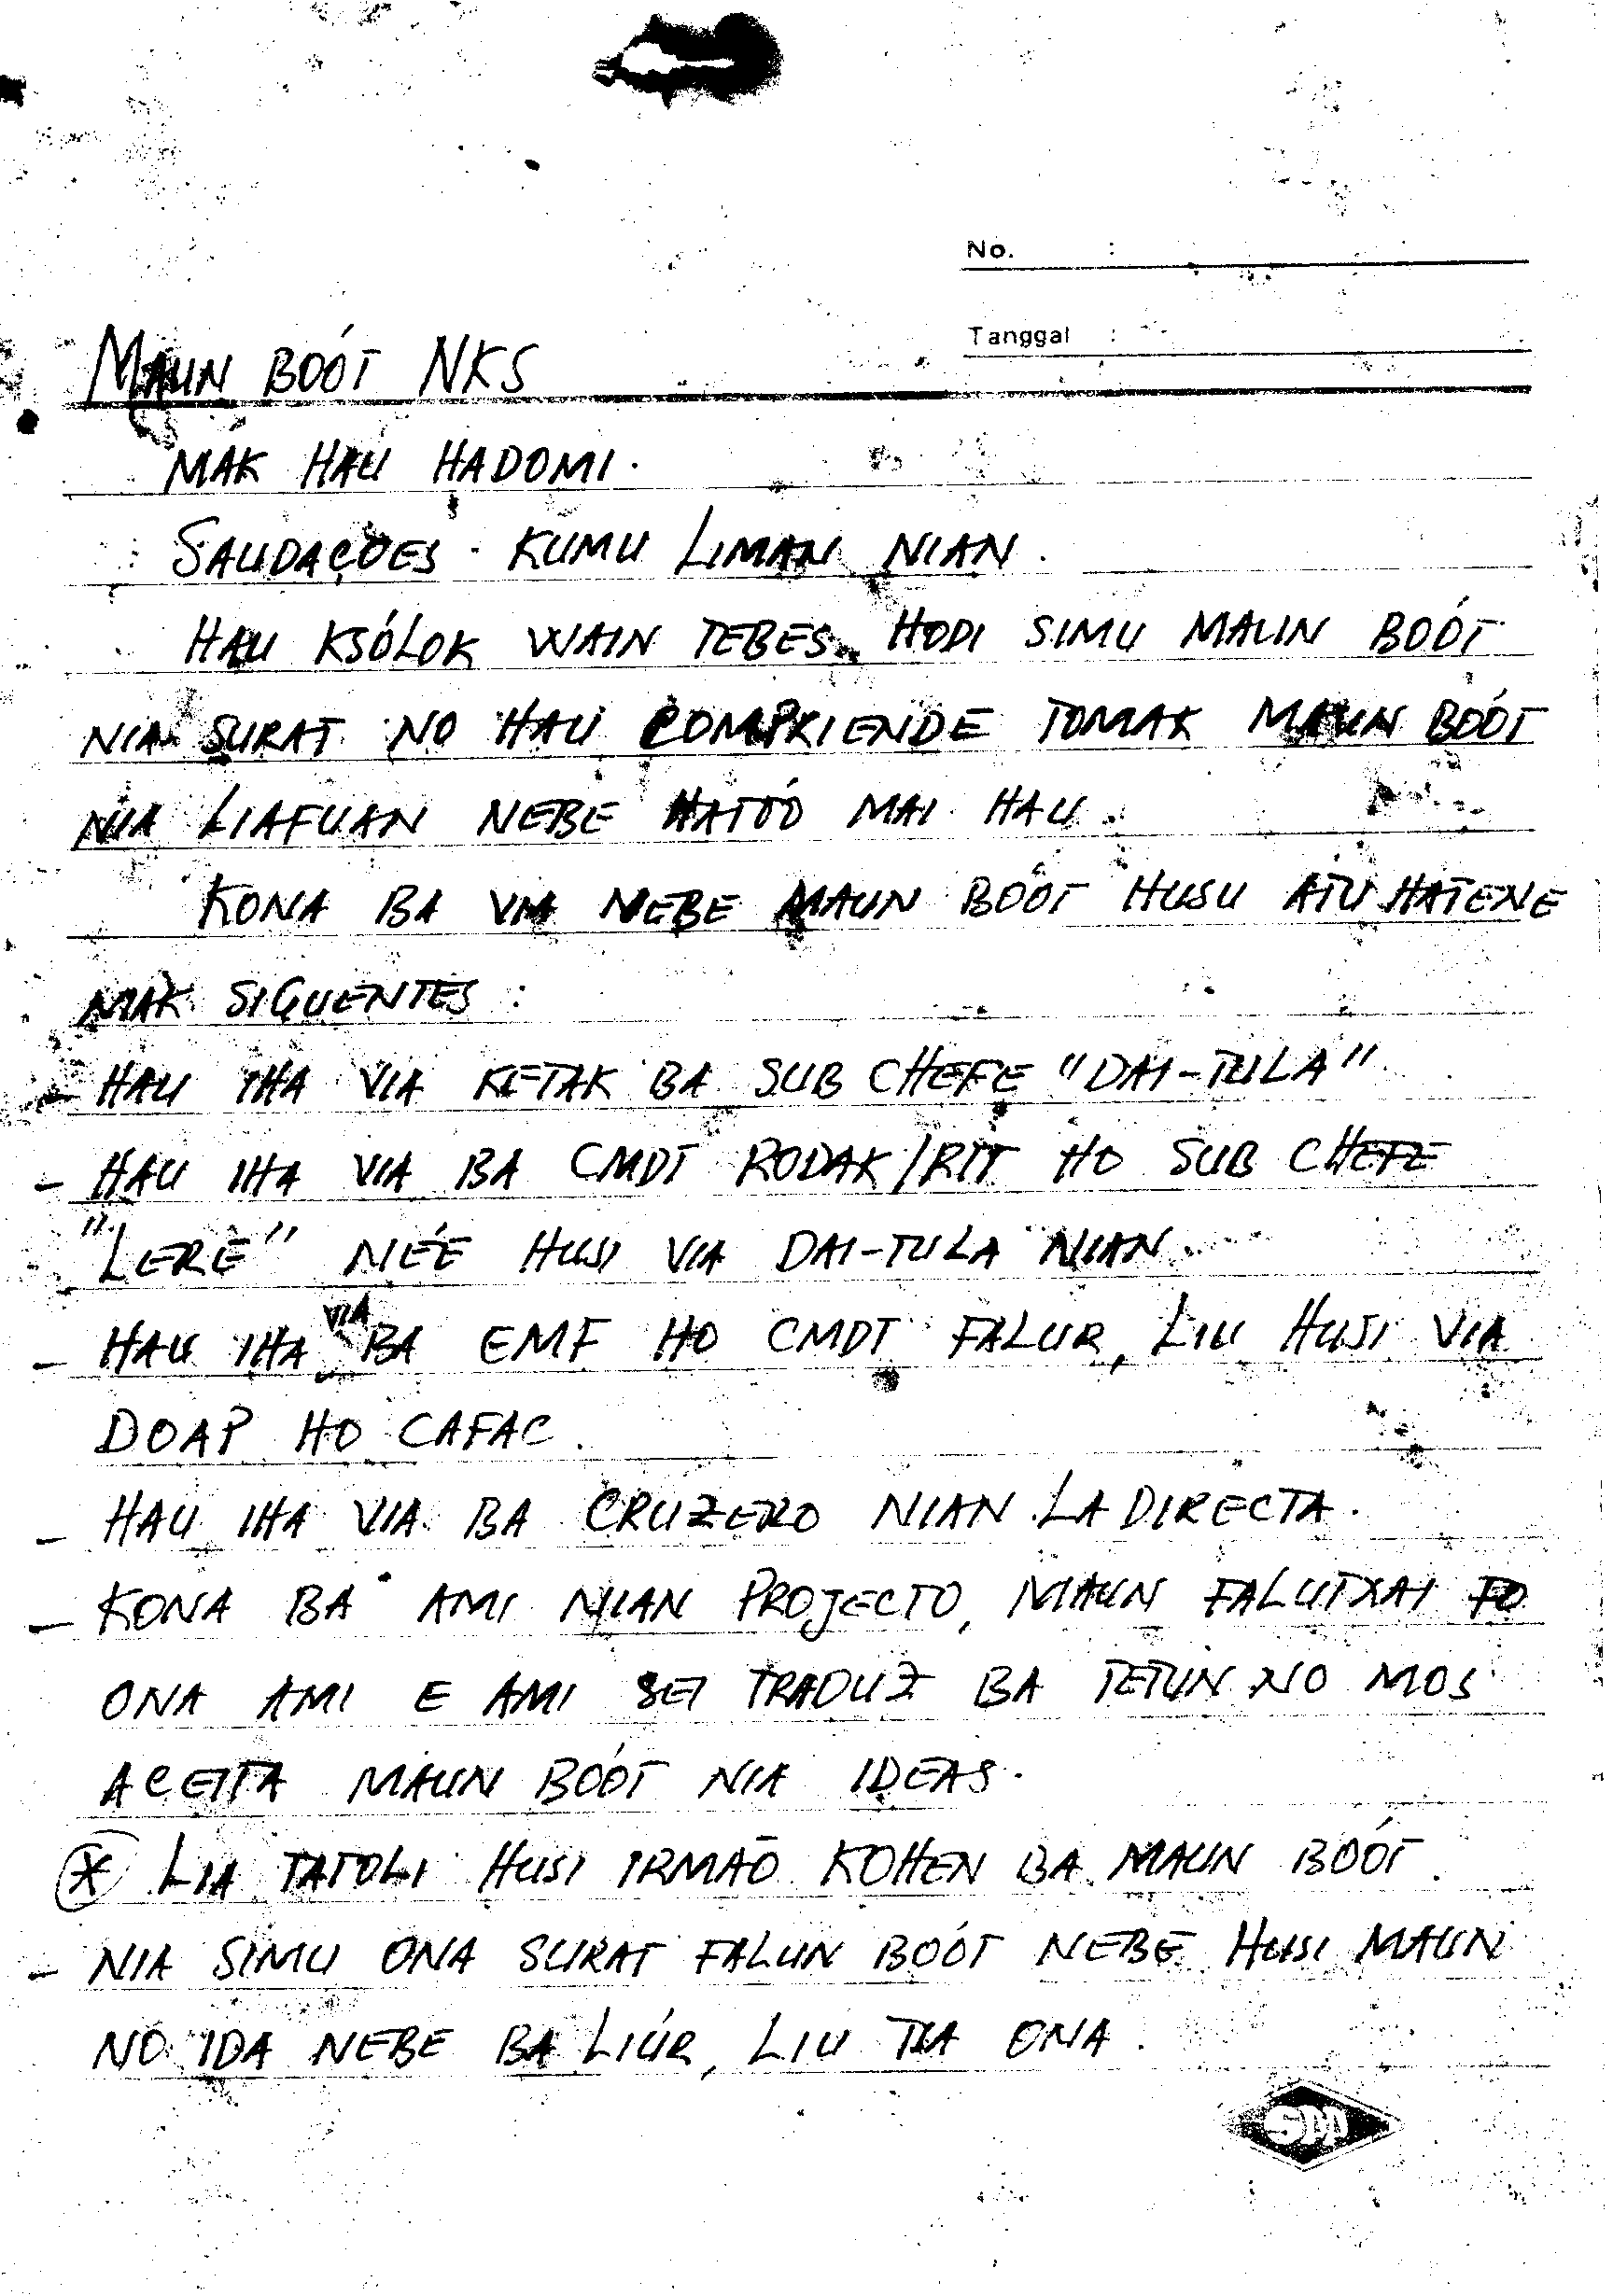 No. :
Tanggal :
MAUN BOÓT NKS
MAK HAU HADOMI.
SAUDAÇOES. KUMU LIMAN NIAN.
HAU KSÓLOK WAIN TEBES HODI SIMU MAUN BOÓT
NIA SURAT NO HAU COMPRIENDE TOMAK MAUN BOÓT
NIA LIAFUAN NEBE HATOÓ MAI HAU.
KONA BA VIA NEBE MAUN BOÓT HUSU ATU HATENE
MAK SIGUENTES :
- HAU IHA VIA KETAK BA SUB CHEFE "DAI-TULA"
- HAU IHA VIA BA CMDT RODAK/RTT HO SUB CHEFE
"LERÈ" NÉE HUSI VIA DAI-TULA NIAN
- HAU IHA VIA BA EMF HO CMDT FALUR, LIU HUSI VIA
DOAP HO CAFAC.
- HAU IHA VIA BA CRUZERO NIAN LA DIRECTA.
- KONA BA AMI NIAN PROJECTO, MAUN FALUTXAI FO
ONA AMI E AMI SEI TRADUZ BA TETUN NO MOS
ACEITA MAUN BOÓT NIA IDEAS.
* LIA TATOLI HUSI IRMAÕ KOHEN BA MAUN BOÓT.
- NIA SIMU ONA SURAT FALUN BOÓT NEBE HUSI MAUN
NO IDA NEBE BA LIÚR, LIU TIA ONA.
SM